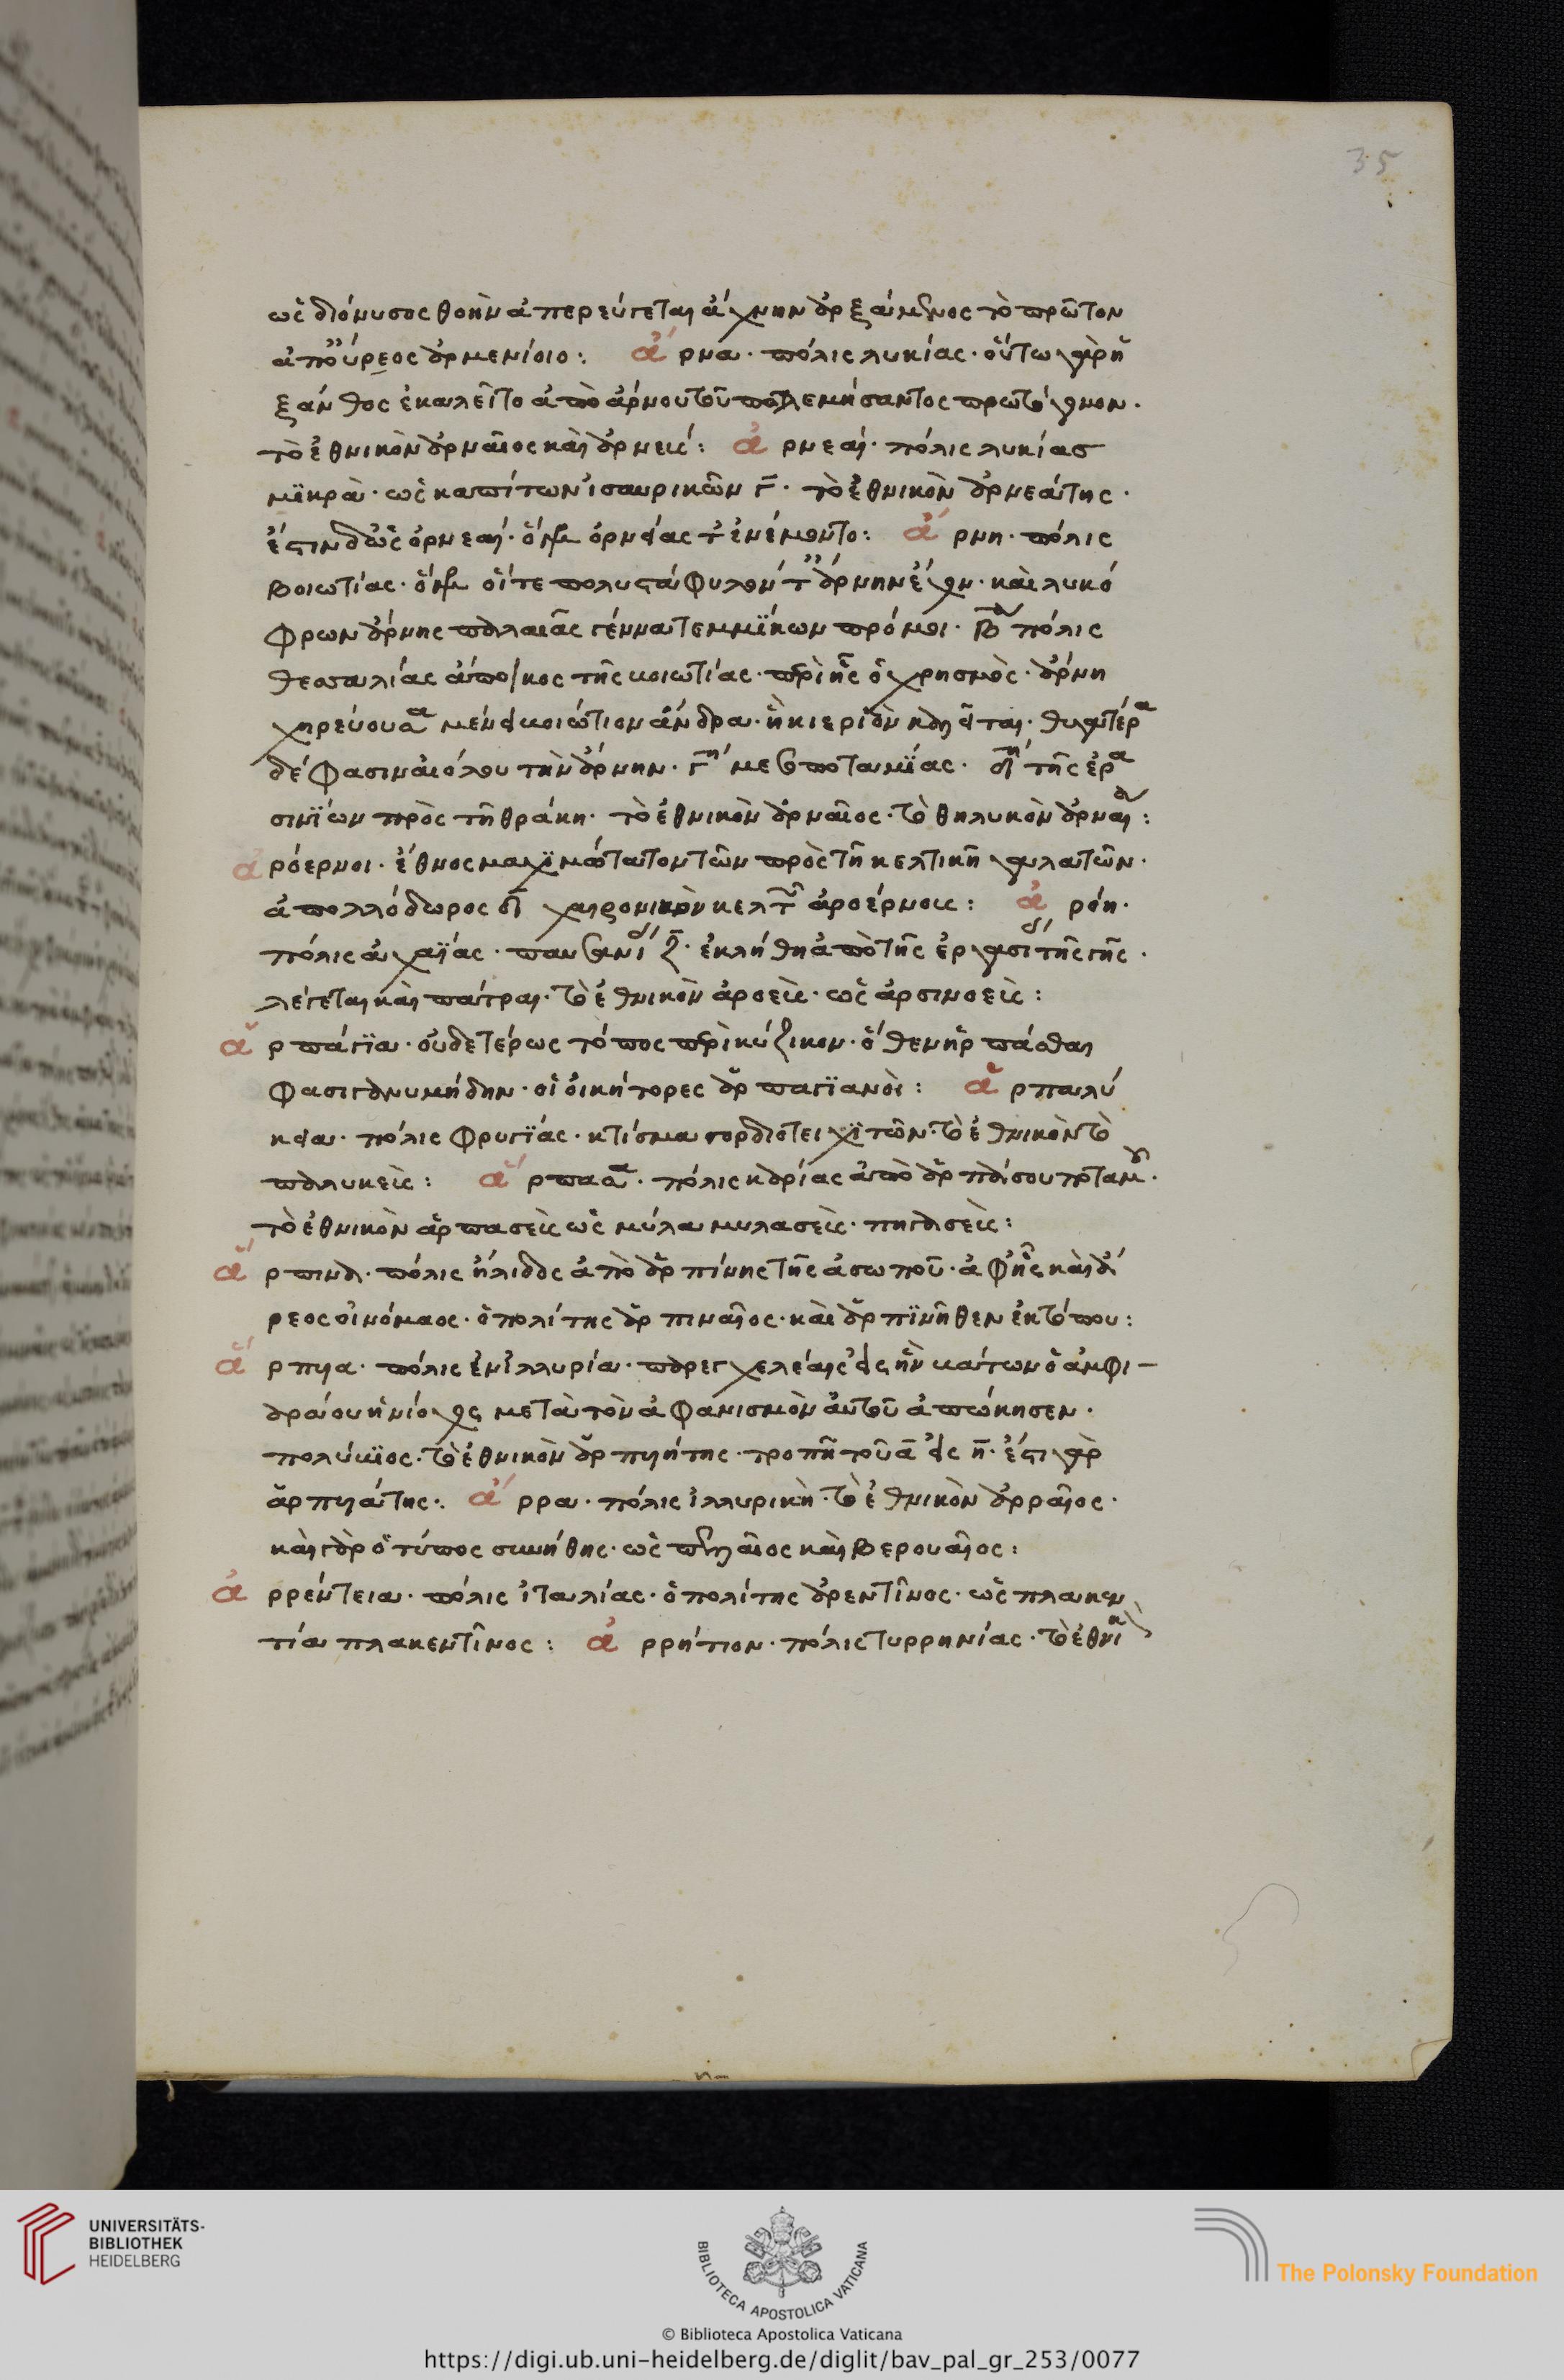 35
ὡς διόνυσος θοὴν ἀπερεύγεται ἄχνην ἀρξάμενος τὸ πρῶτον
ἀπ' οὔρεος ἀρμενίοιο: ἄρνα. πόλις λυκίας. οὕτω γὰρ ἡ
ξάνθος ἐκαλεῖτο ἀπὸ ἄρνου τοῦ πολεμήσαντος πρωτόγονον.
τὸ ἐθνικὸν ἀρναῖος καὶ ἀρνεύς: ἀρνεαί. πόλις λυκίας
μικρὰ. ὡς καπίτων ἰσαυρικῶν γ. τὸ ἐθνικὸν ἀρνεάτης.
ἔστιν δ' ὡς ὀρνεαί. ὅμηρος ὀρνείας τ' ἐνέμοντο: ἄρνη. πόλις
βοιωτίας. ὅμηρος οἵ τε πολυστάφυλον ἄρνην ἔχον. καὶ λυκό
φρων ἄρνης παλαιᾶς γέννα τεμμίκων πρόμοι. β πόλις
θεσσαλίας ἄποικος τῆς βοιωτίας. περὶ ἧς ὁ χρησμὸς. ἄρνη
χηρεύουσα μένει βοιώτιον ἄνδρα. ἡ κιεριὸν καλεῖται. θυγατέρα
δέ φασιν αἰόλου τὴν ἄρνην. γ μεσοποταμίας. δ τῆς ἐρα
σινίων πρὸς τῇ θράκῃ. τὸ ἐθνικὸν ἀρναῖος. τὸ θηλυκὸν ἀρναία:
ἀρόερνοι. ἔθνος μαχιμώτατον τῶν πρὸς τῇ κελτικῇ γαλατῶν.
ἀπολλόδωρος δ κελτ ἀροέρνοις: ἀρόη.
πόλις ἀχαΐας. παυσανί ζ. ἐκλήθη ἀπὸ τῆς ἐργασί τῆς γῆς.
λέγεται καὶ πάτραι. τὸ ἐθνικὸν ἀροεὺς. ὡς ἀρσινοεὺς:
ἁρπάγια. οὐδετέρως τόπος περὶ κύζικον. ὅθεν ἡρπάσθαι
φασι γανυμήδην. οἱ οἰκήτορες ἁρπαγιανοὶ: ἁρπαλύ
κεια. πόλις φρυγίας. κτίσμα γορδιοτειχιτῶν. τὸ ἐθνικὸν τὸ
παλυκεὺς: ἅρπασα. πόλις καρίας ἀπὸ ἁρπάσου ποταμοῦ.
τὸ ἐθνικὸν ἁρπασεὺς ὡς μύλα μυλασεὺς. πηγασεὺς:
ἅρπινα. πόλις ἤλιδος ἀπὸ ἁρπίνης τῆς ἀσωποῦ. ἀφ' ἧς καὶ ἄ
ρεος οἰνόμαος. ὁ πολίτης ἁρπιναῖος. καὶ ἁρπινῆθεν ἐκ τόπου:
ἅρπυια. πόλις ἐν ἰλλυρία. παρ' ἐγχελέαις εἰς ἣν βάτων ὁ ἀμφι-
αράου ἡνίοχος μετὰ τὸν ἀφανισμὸν αὐτοῦ ἀπώκησεν.
πολύβιος. τὸ ἐθνικὸν ἁρπυήτης. τροπῇ τοῦ α εἰς η. ἔστι γὰρ
ἁρπυάτης: ἄρρα. πόλις ἰλλυρικὴ. τὸ ἐθνικὸν ἀρραῖος.
καὶ γὰρ ὁ τύπος συνήθης. ὡς καὶ βεροιαῖος:
ἀρρέντεια. πόλις ἰταλίας. ὁ πολίτης ἀρεντῖνος. ὡς πλακεν
τία πλακεντῖνος: ἀρρήτιον. πόλις τυρρηνίας. τὸ ἐθνικ
UNIVERSITÄTS-
BIBLIOTHEK
HEIDELBERG
BIBLIOTECA APOSTOLICA VATICANA
The Polonsky Foundation
© Biblioteca Apostolica Vaticana
https://digi.ub.uni-heidelberg.de/diglit/bav_pal_gr_253/0077